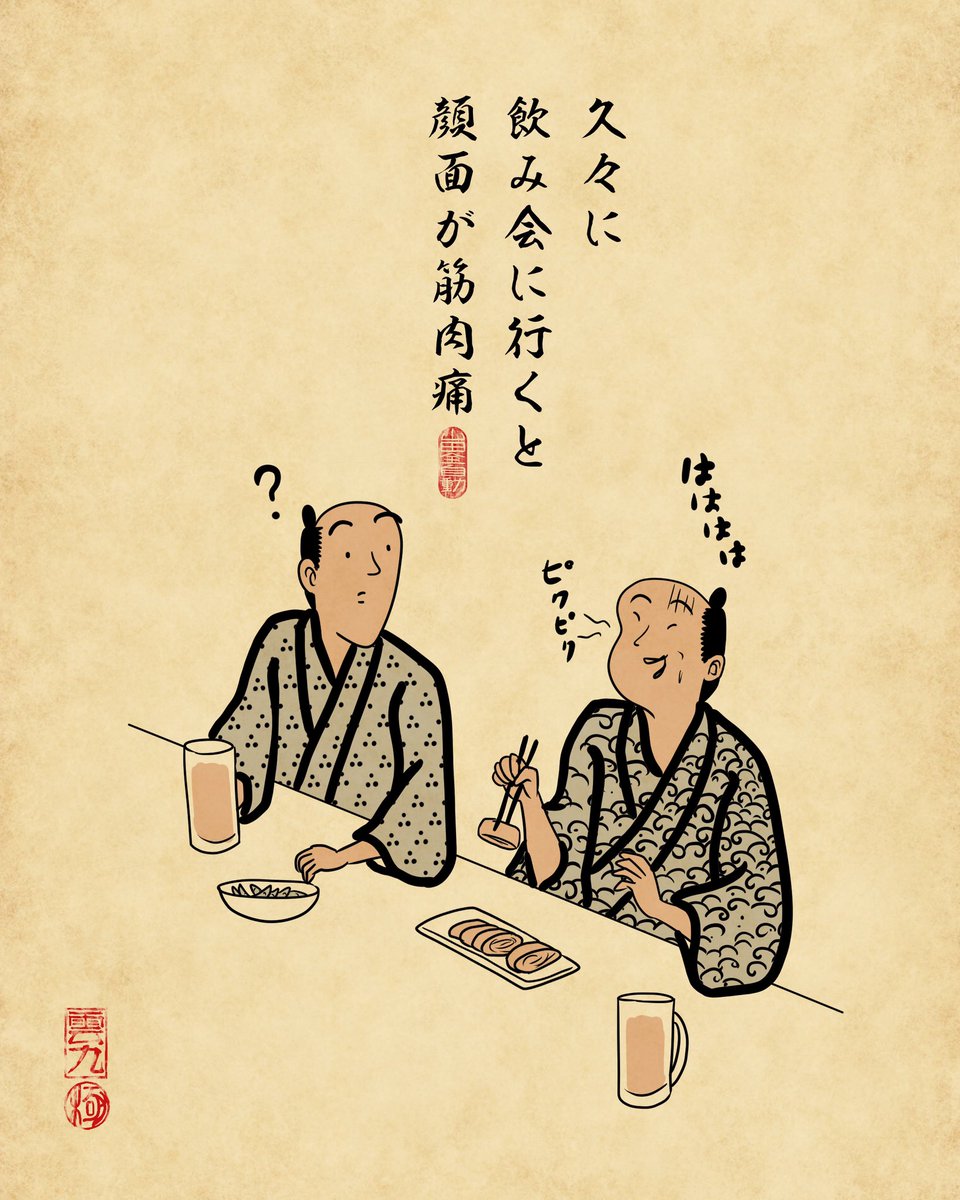 久々に
飲み会に行くと
顔面が筋肉痛
？
はははは
ピクピク